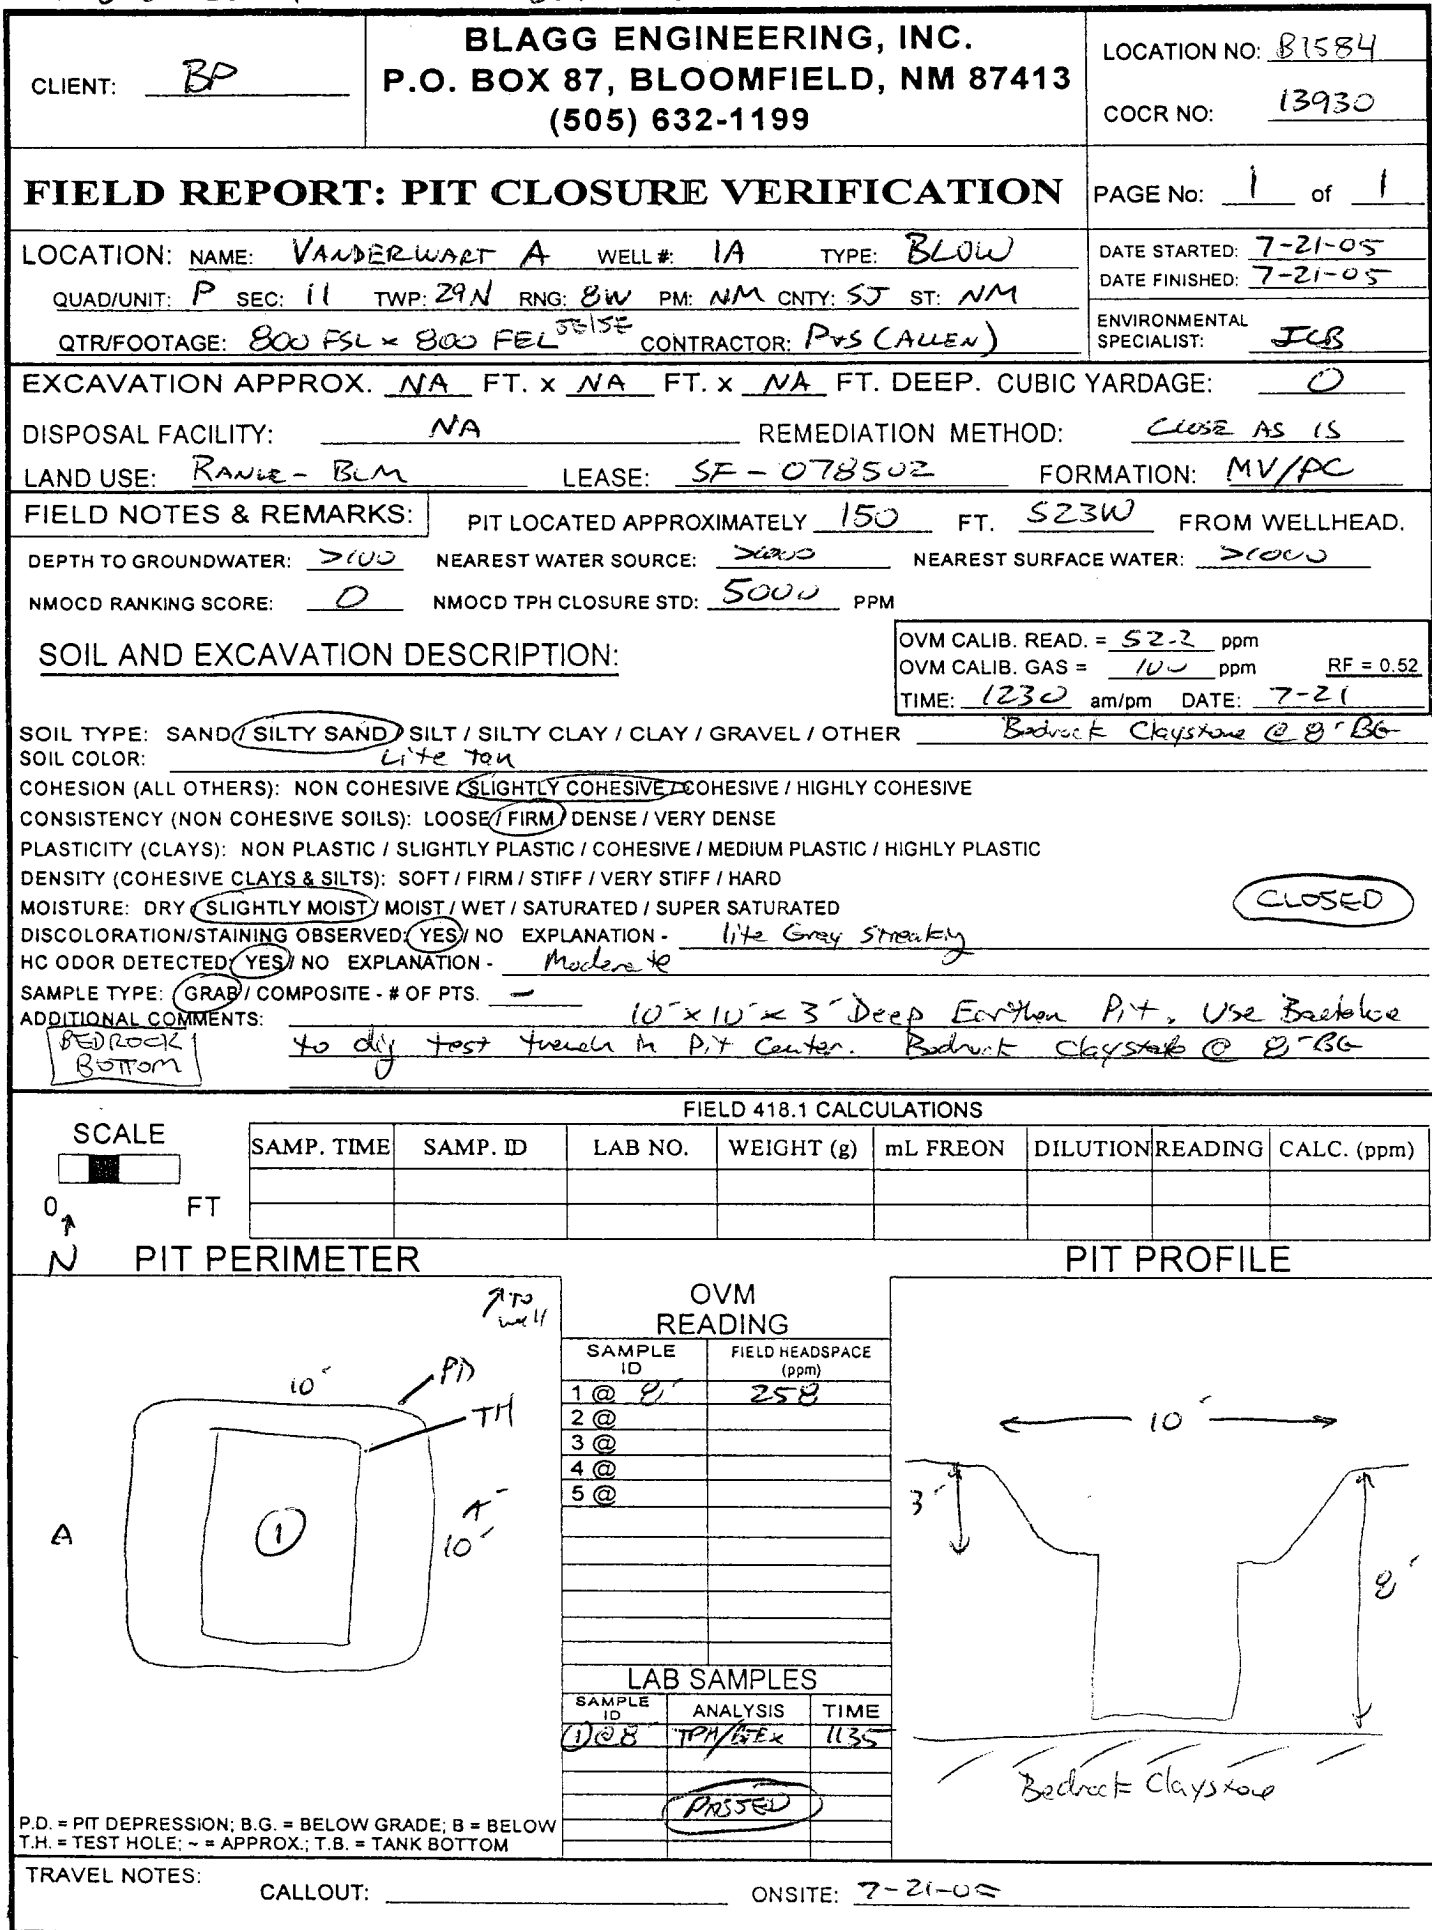 BLAGG ENGINEERING, INC.
P.O. BOX 87, BLOOMFIELD, NM 87413
(505) 632-1199
CLIENT: BP
LOCATION NO: B1584
COCR NO: 13930
FIELD REPORT: PIT CLOSURE VERIFICATION
PAGE No: 1 of 1
LOCATION: NAME: VANDERWART A WELL #: 1A TYPE: BLOW
QUAD/UNIT: P SEC: 11 TWP: 29N RNG: 8W PM: NM CNTY: SJ ST: NM
QTR/FOOTAGE: 800 FSL x 800 FEL SE/SE CONTRACTOR: P+S (ALLEN)
DATE STARTED: 7-21-05
DATE FINISHED: 7-21-05
ENVIRONMENTAL
SPECIALIST: JCB
EXCAVATION APPROX. NA FT. x NA FT. x NA FT. DEEP. CUBIC YARDAGE: 0
DISPOSAL FACILITY: NA REMEDIATION METHOD: CLOSE AS IS
LAND USE: RANGE - BLM LEASE: SF-078502 FORMATION: MV/PC
FIELD NOTES & REMARKS: PIT LOCATED APPROXIMATELY 150 FT. S23W FROM WELLHEAD.
DEPTH TO GROUNDWATER: >100 NEAREST WATER SOURCE: >1000 NEAREST SURFACE WATER: >1000
NMOCD RANKING SCORE: 0 NMOCD TPH CLOSURE STD: 5000 PPM
SOIL AND EXCAVATION DESCRIPTION:
OVM CALIB. READ. = 52.2 ppm
OVM CALIB. GAS = 100 ppm RF = 0.52
TIME: 1230 am/pm DATE: 7-21
SOIL TYPE: SAND / SILTY SAND / SILT / SILTY CLAY / CLAY / GRAVEL / OTHER Bedrock Claystone @ 8' BG
SOIL COLOR: Lite Tan
COHESION (ALL OTHERS): NON COHESIVE / SLIGHTLY COHESIVE / COHESIVE / HIGHLY COHESIVE
CONSISTENCY (NON COHESIVE SOILS): LOOSE / FIRM / DENSE / VERY DENSE
PLASTICITY (CLAYS): NON PLASTIC / SLIGHTLY PLASTIC / COHESIVE / MEDIUM PLASTIC / HIGHLY PLASTIC
DENSITY (COHESIVE CLAYS & SILTS): SOFT / FIRM / STIFF / VERY STIFF / HARD
MOISTURE: DRY / SLIGHTLY MOIST / MOIST / WET / SATURATED / SUPER SATURATED
CLOSED
DISCOLORATION/STAINING OBSERVED: YES / NO EXPLANATION - lite Gray Streaking
HC ODOR DETECTED: YES / NO EXPLANATION - Moderate
SAMPLE TYPE: GRAB / COMPOSITE - # OF PTS. —
ADDITIONAL COMMENTS: 10' x 10' x 3' Deep Earthen Pit. Use Backhoe
to dig test trench in Pit Center. Bedrock Claystone @ 8' BG
BEDROCK
BOTTOM
FIELD 418.1 CALCULATIONS
SCALE
0 FT
SAMP. TIME SAMP. ID LAB NO. WEIGHT (g) mL FREON DILUTION READING CALC. (ppm)
N
PIT PERIMETER
PIT PROFILE
TO
well
10'
PD
TH
1
A
10'
OVM
READING
SAMPLE
ID
FIELD HEADSPACE
(ppm)
1 @ 8' 258
2 @
3 @
4 @
5 @
LAB SAMPLES
SAMPLE
ID
ANALYSIS TIME
1 @ 8' TPH/BTEX 1135
PASSED
10'
3'
8'
Bedrock Claystone
P.D. = PIT DEPRESSION; B.G. = BELOW GRADE; B = BELOW
T.H. = TEST HOLE; ~ = APPROX.; T.B. = TANK BOTTOM
TRAVEL NOTES:
CALLOUT:
ONSITE: 7-21-05